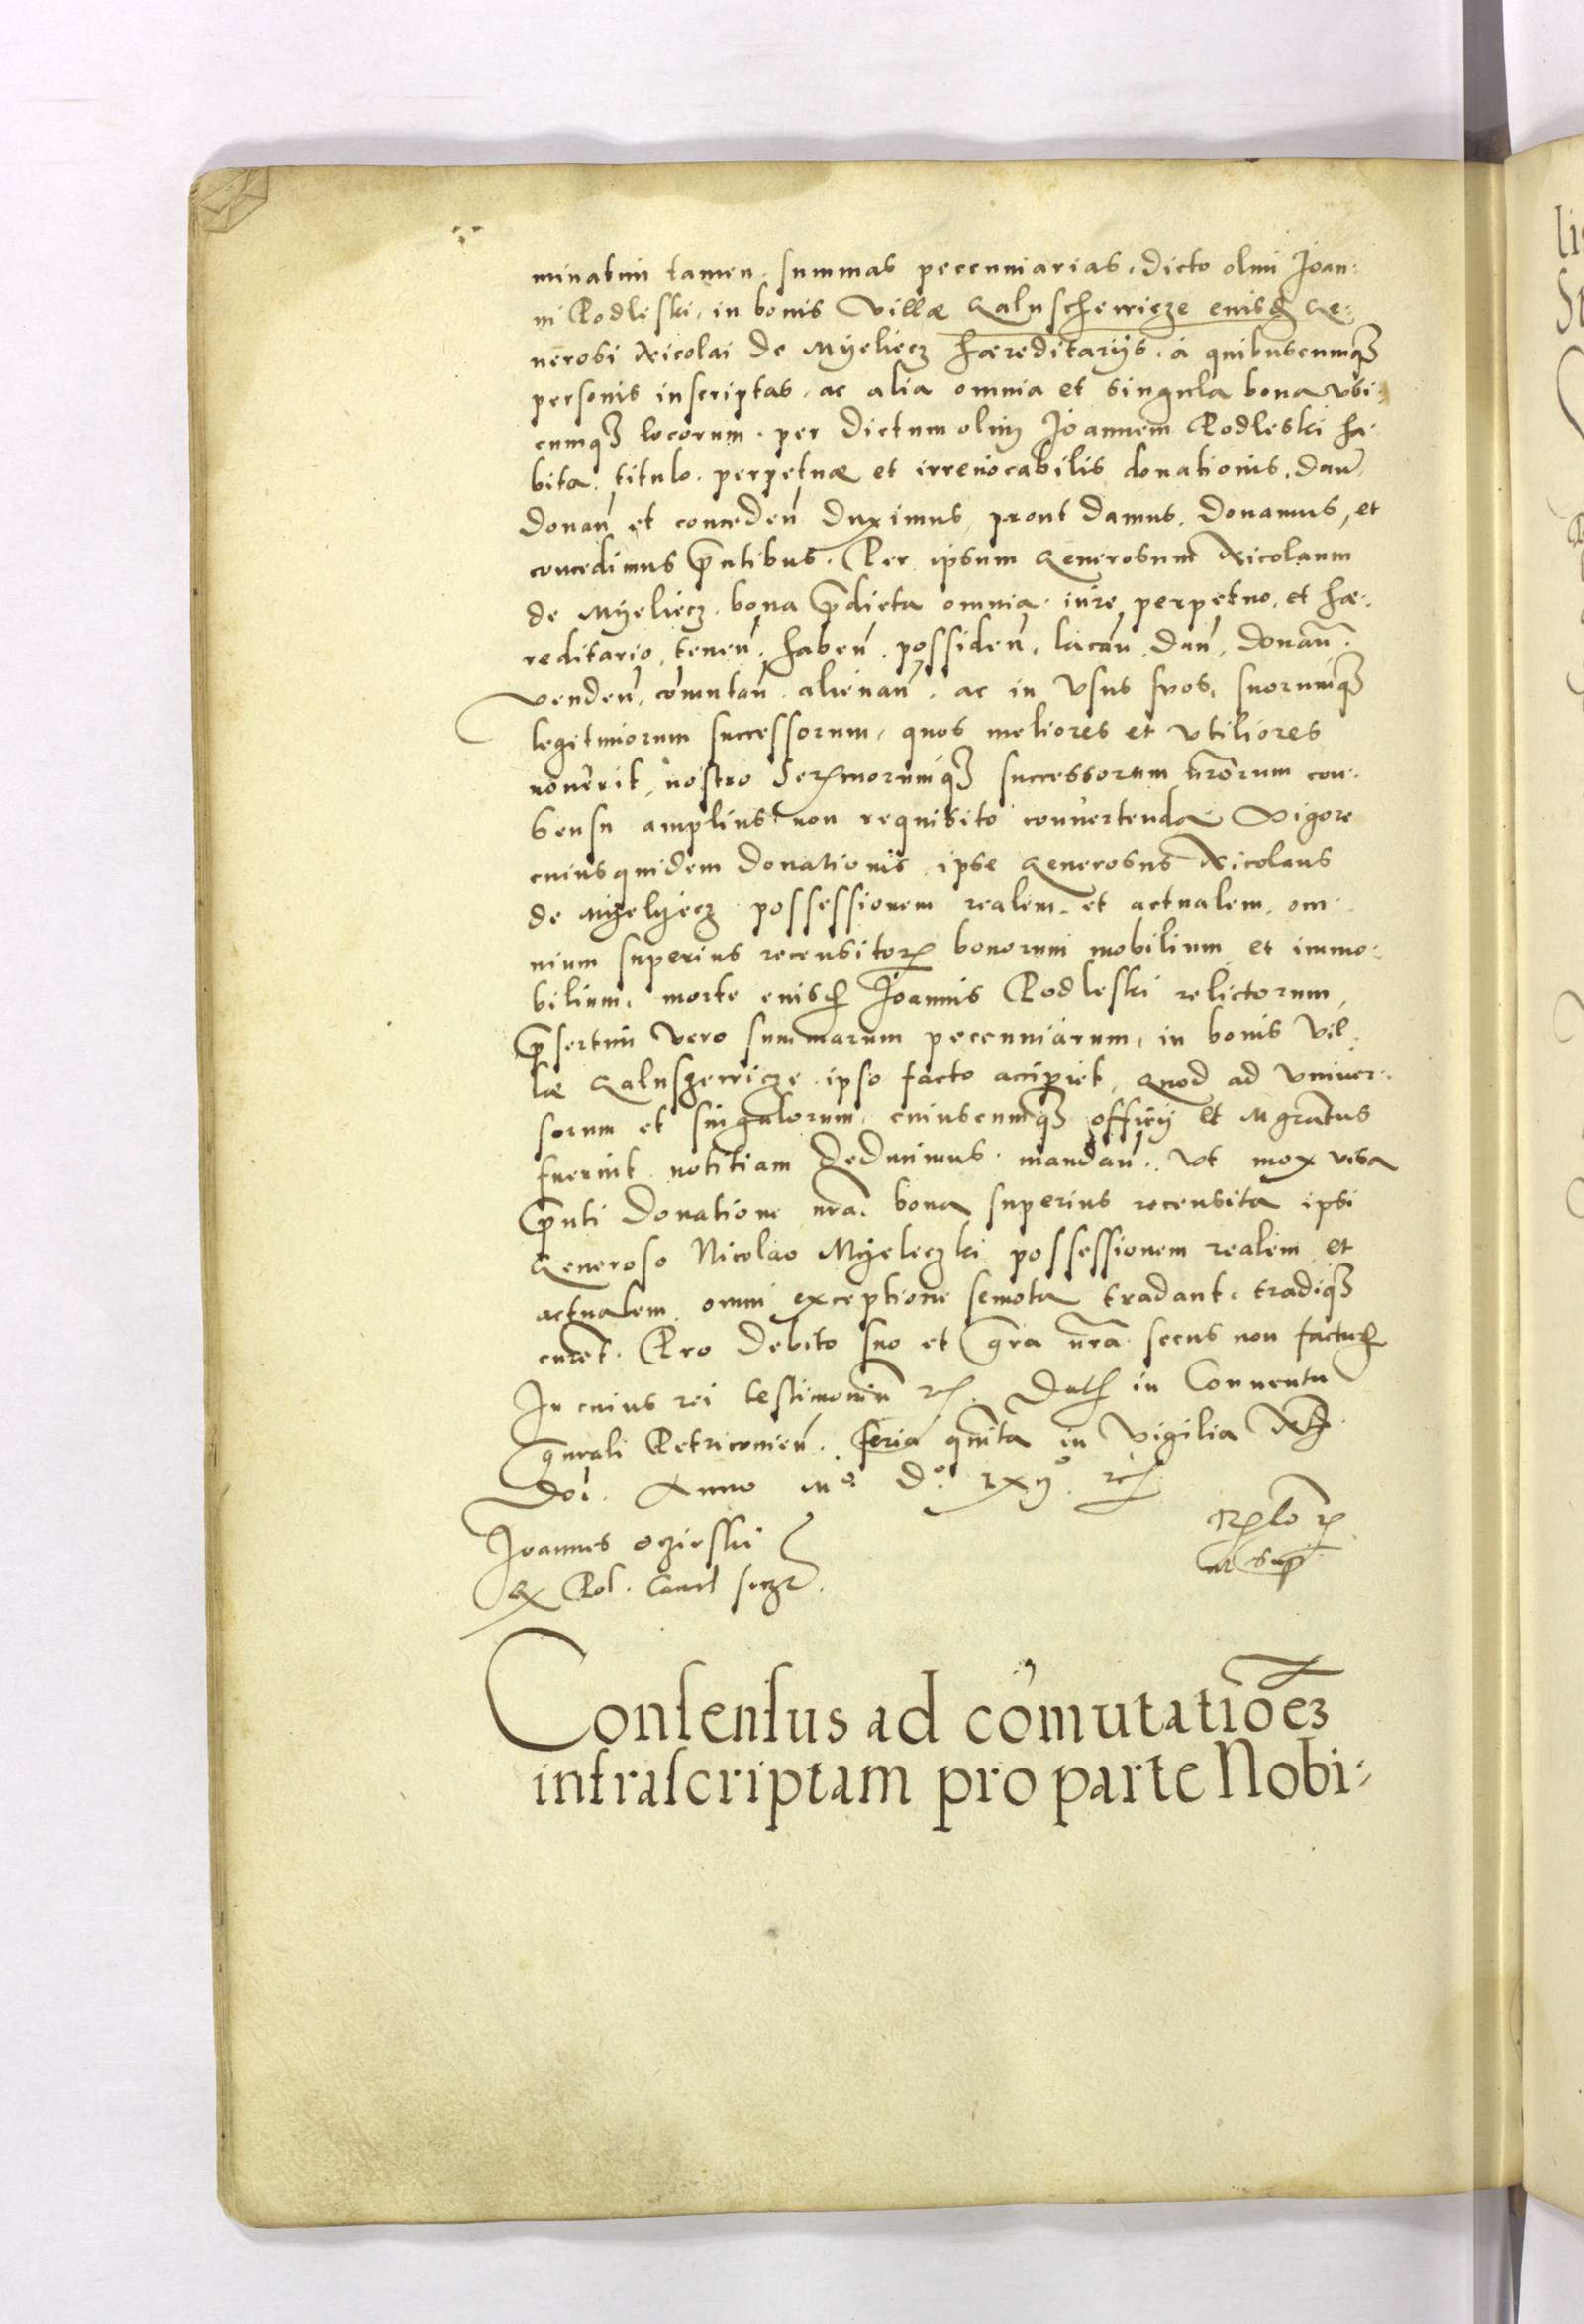 minatim tamen. summas pecunniarias, dicto olim Joan:
ni Podleski, in bonis Villæ Galuscherricze eiusd Ge:
nerosi Nicolai de Myeliecz hæreditariis, a quibuscumqȝ
personis inscriptas. ac alia omnia et singula bona vbi:
cumqȝ locorum. per dictum olim Joannem Podleski ha:
bita. titulo. perpetuæ et irreuocabilis donationis. dan
donan et conceden duximus, prout damus. donamus, et
concedimus pntibus. Per ipsum Generosum Nicolaum
de Myeliecz. bona pdicta omnia. iure perpetuo. et hæ:
reditario, tenen. haben. possiden. locan. dan. donan.
venden, comutan. alienan. ac in vsus suos, suorumqȝ
legitimorum successorum, quos meliores et vtiliores
nouerit, nostro Sermorumqȝ successorum nrorum con:
sensu amplius non requisito conuertenda Vigore
cuiusquidem donationis ipse Generosus Nicolaus
de Myelyecz possessionem realem. et actualem. om:
nium superius recensitor bonorum mobilium et immo:
bilium, morte eiusd Joannis Podleski relictorum,
psertim vero summarum pecunniarum, in bonis vil:
læ Galuszerricze. ipso facto accipiet, Quod ad vniuer:
sorum et singulorum, cuiuscumqȝ officij et Mgratus
fuerint. notitiam deducimus. mandan. vt mox visa
pnti donatione nra. bona superius recensita ipsi
Generoso Nicolao Myeleczki possessionem realem et
actualem omni exceptione semota tradant. tradiqȝ
curent. Pro debito suo et gra nra. secus non factur
In cuius rei testimonium rc. Dat in Conuentu
gnrali Petricouien. feria quinta in Vigilia
Doi. Anno Mo. Do. lxijo. rc
Joannes Ozieski
ut sup
Consensus ad comutatioeȝ
infrascriptam pro parte Nobi: